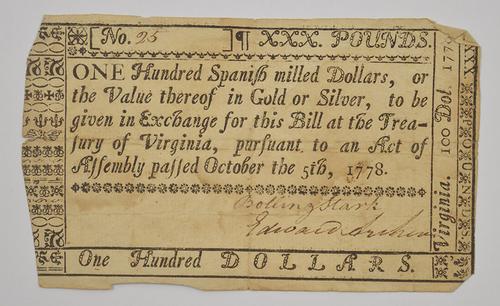 No. 25 ¶ XXX. POUNDS.
ONE Hundred Spaniſh milled Dollars, or
the Value thereof in Gold or Silver, to be
given in Exchange for this Bill at the Trea-
ſury of Virginia, purſuant to an Act of
Aſſembly paſſed October the 5th, 1778.
Bolling Stark
Edward Archer
One Hundred DOLLARS.
Virginia. 100 Dol. 177
XXX POUNDS